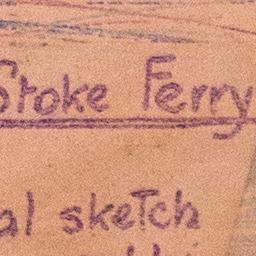 Stoke Ferry
al sketch